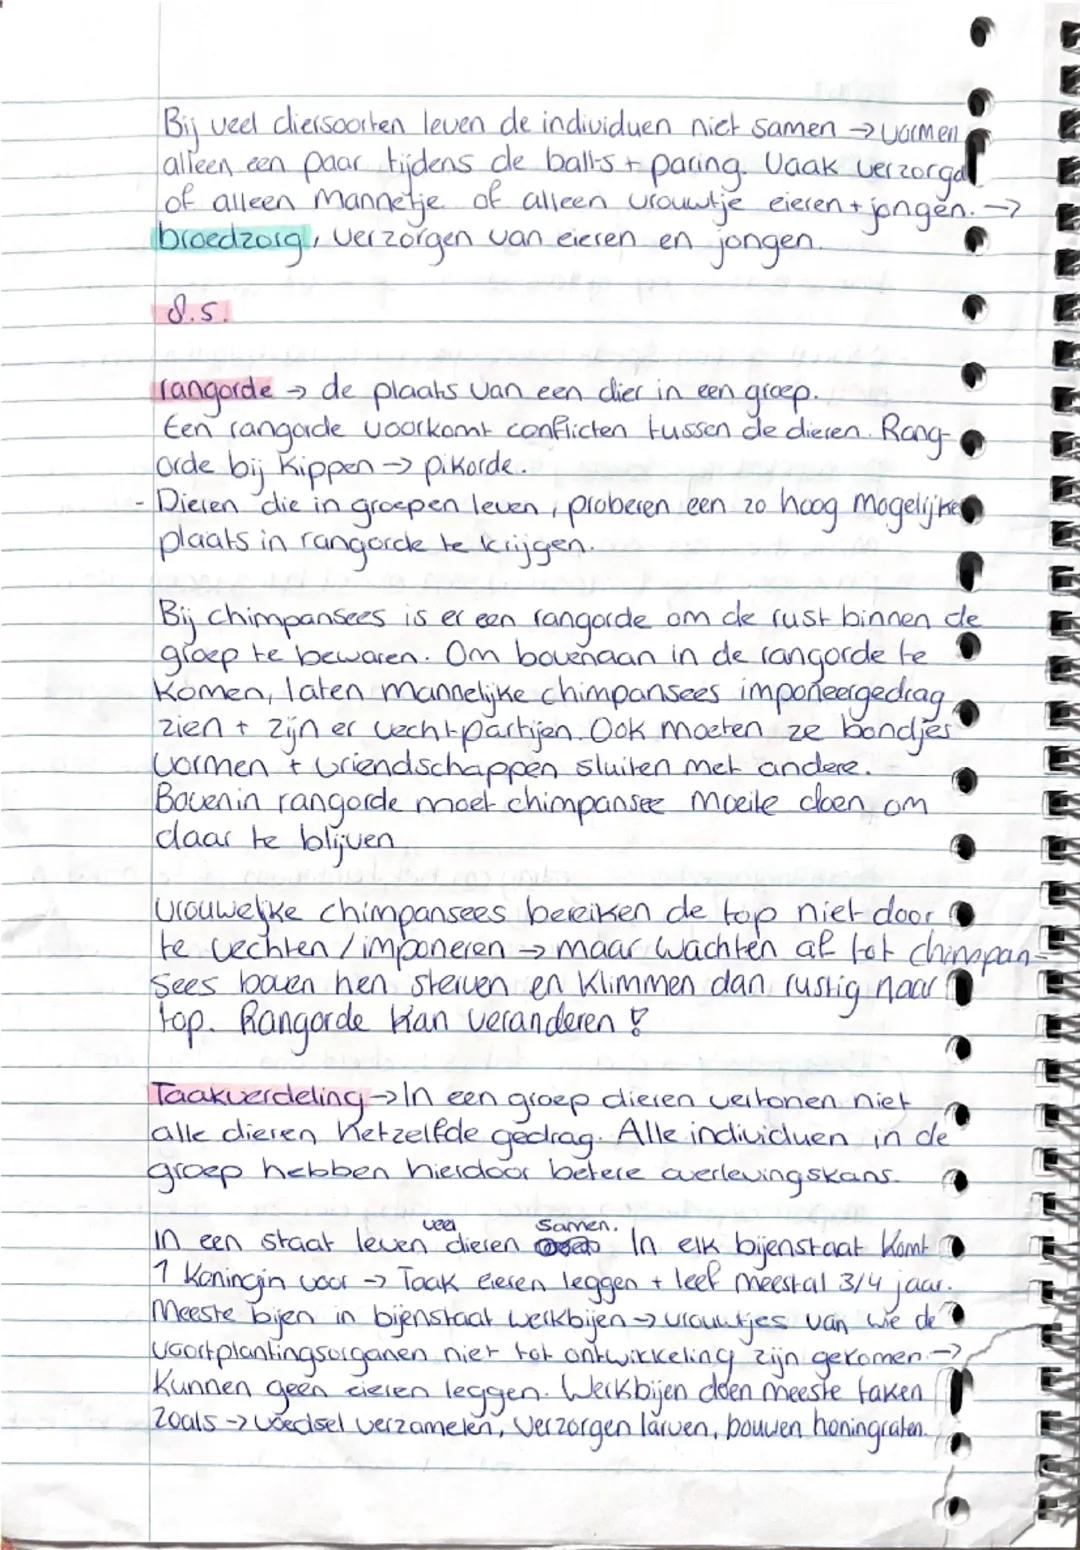 Bij veel diersoorten leven de individuen niet samen → vormen
alleen een paar tijdens de balts + paring. Vaak verzorgd
of alleen mannetje of alleen vrouwtje eieren + jongen. →
broedzorg, verzorgen van eieren en jongen.
8.5.
rangorde → de plaats van een dier in een groep.
Een rangorde voorkomt conflicten tussen de dieren. Rang-
orde bij kippen → pikorde.
- Dieren die in groepen leven, proberen een zo hoog mogelijke
plaats in rangorde te krijgen.
Bij chimpansees is er een rangorde om de rust binnen de
groep te bewaren. Om bovenaan in de rangorde te
komen, laten mannelijke chimpansees imponeergedrag
zien + zijn er vechtpartijen. Ook moeten ze bondjes
vormen + vriendschappen sluiten met andere.
Bovenin rangorde moet chimpansee moeite doen om
daar te blijven
Vrouwelijke chimpansees bereiken de top niet door
te vechten / imponeren → maar wachten af tot chimpan-
sees boven hen sterven en klimmen dan rustig naar
top. Rangorde kan veranderen!
Taakverdeling → In een groep dieren vertonen niet
alle dieren hetzelfde gedrag. Alle individuen in de
groep hebben hierdoor betere overlevingskans.
In een staat leven veel dieren samen. In elk bijenstaat komt
1 koningin voor → Taak eieren leggen + leef meestal 3/4 jaar.
Meeste bijen in bijenstaat werkbijen → vrouwtjes van wie de
voortplantingsorganen niet tot ontwikkeling zijn gekomen →
Kunnen geen eieren leggen. Werkbijen doen meeste taken
zoals → voedsel verzamelen, verzorgen larven, bouwen honingraten.